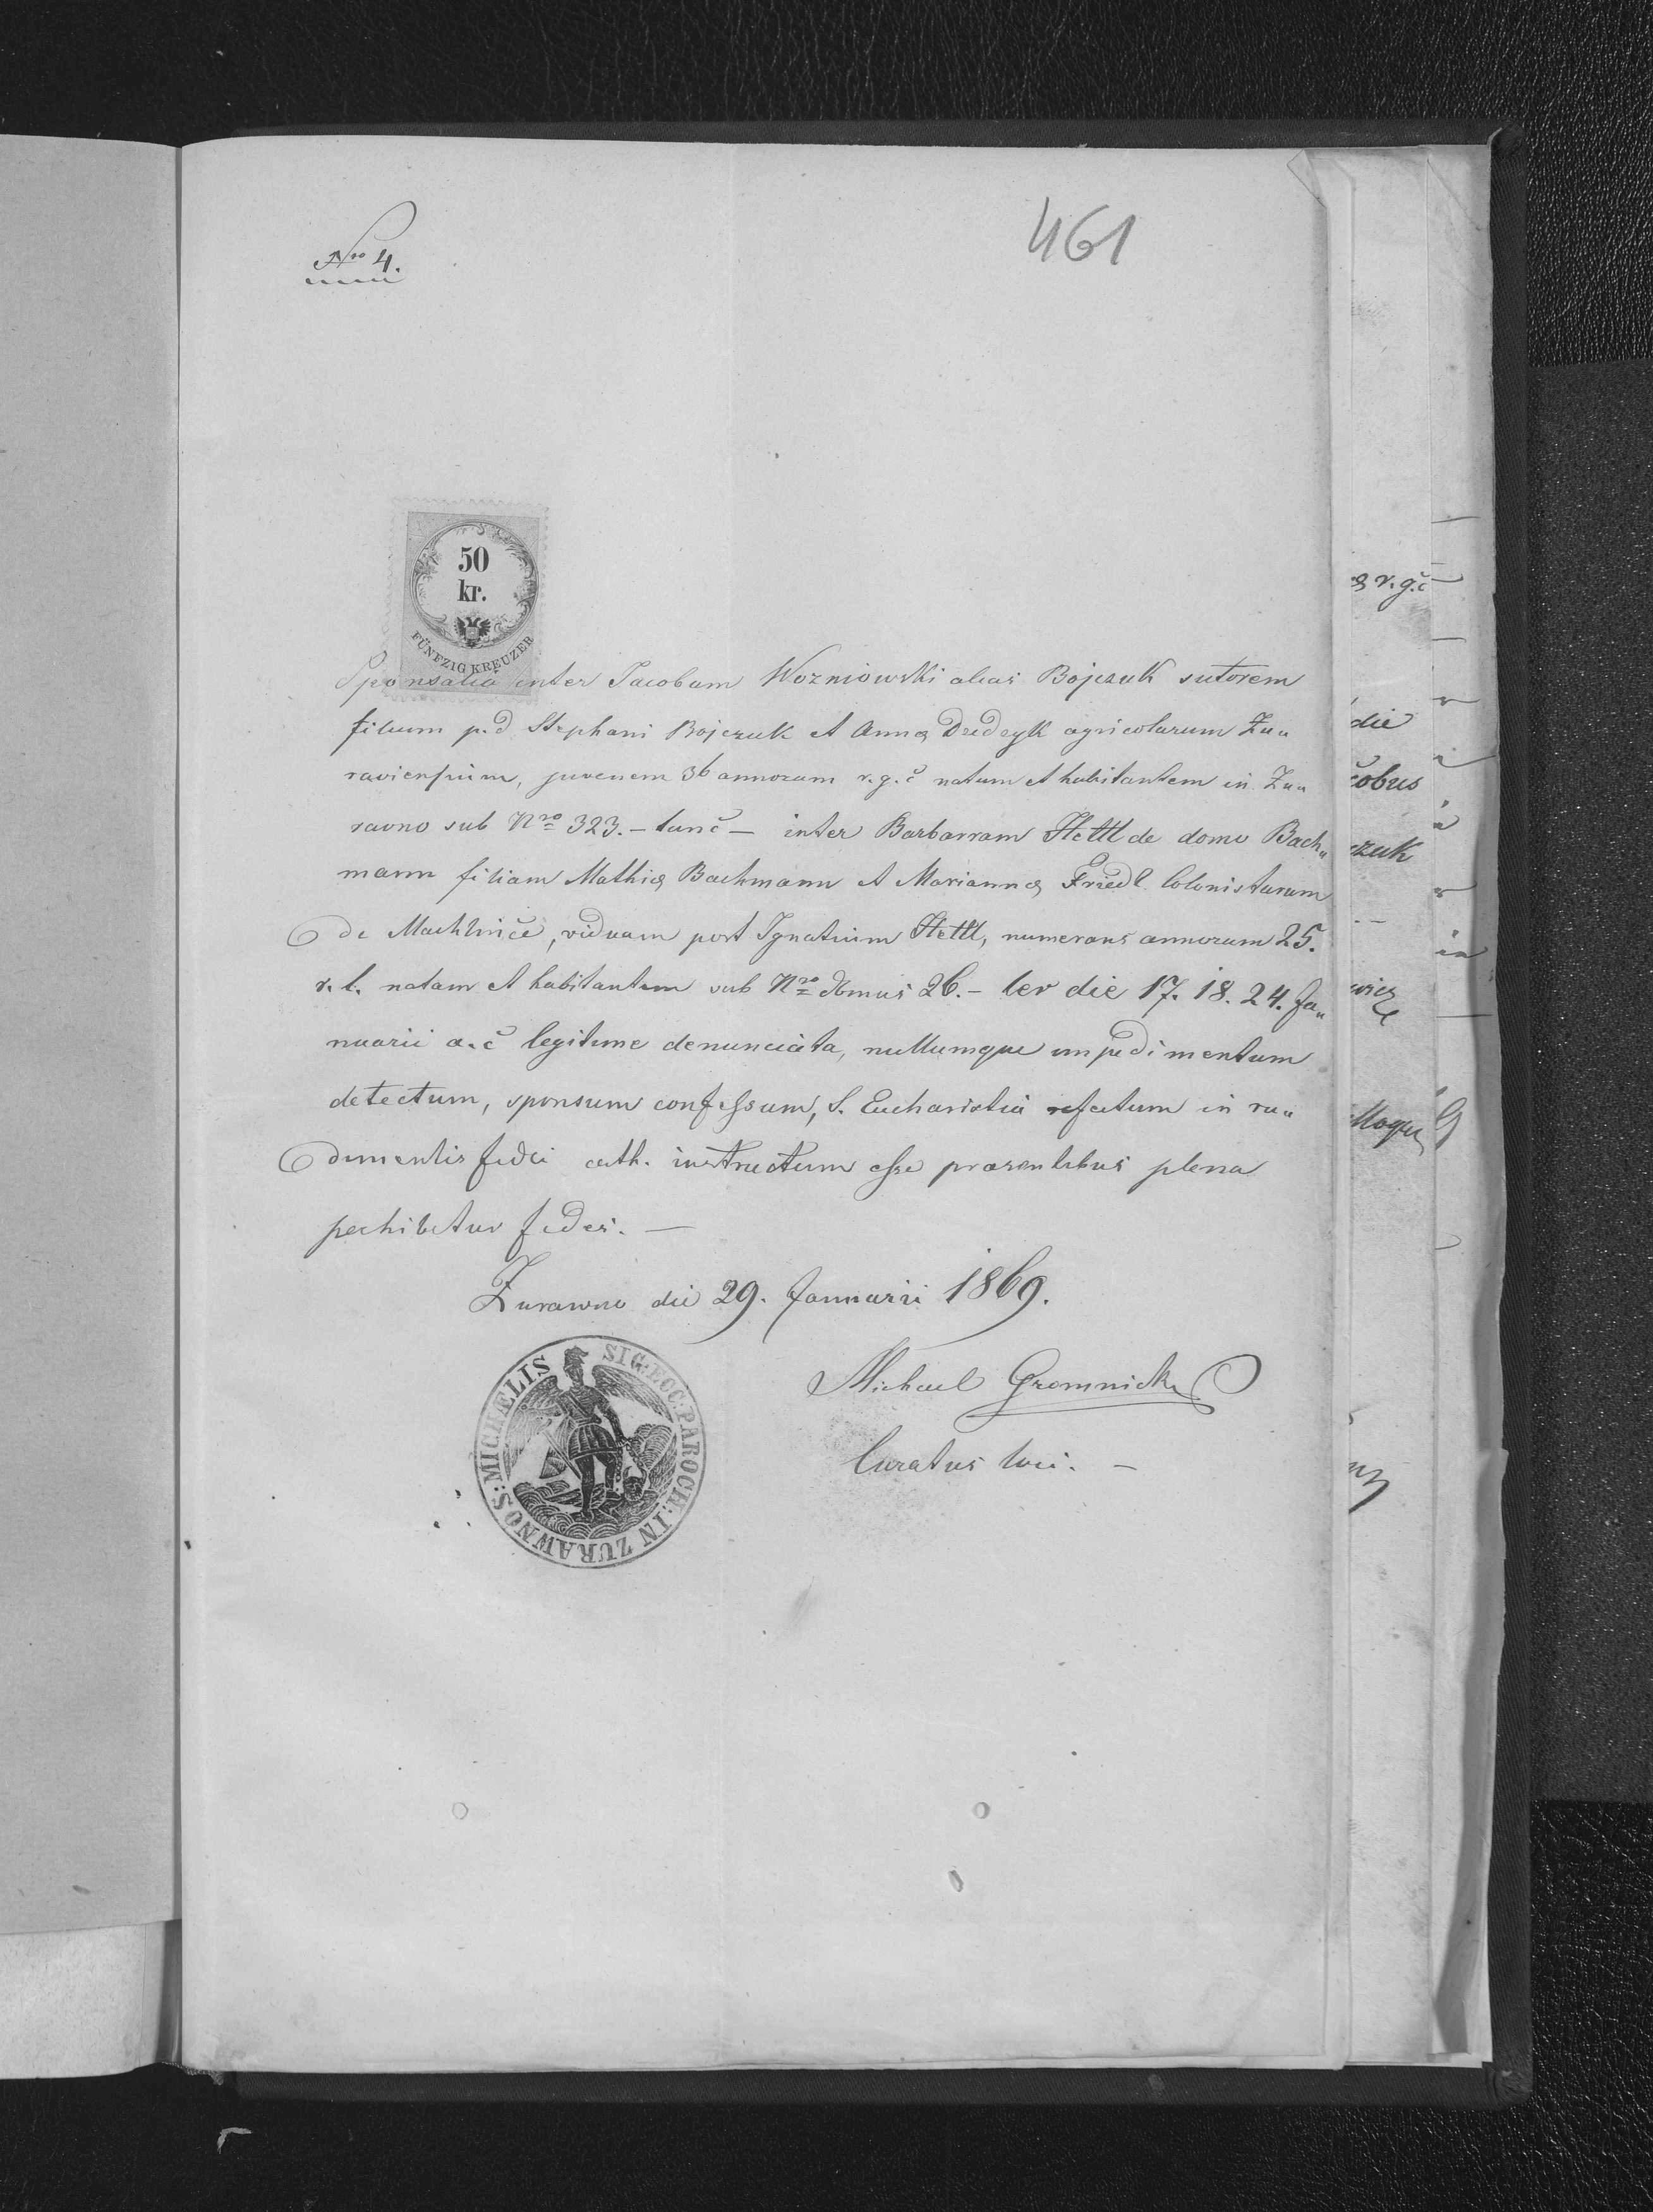 Nro 4.
461
50
kr.
FÜNFZIG KREUZER
Sponsalia inter Jacobum Wozniowski alias Bojczuk sutorem
filium p.d. Stephani Bojczuk et Annæ Dzedzyk agricolarum Zu„
raviensium, juvenem 36 annorum r.g.c̆ natum et habitantem in Zu„
ravno sub Nro 323. – tunc̆ – inter Barbarram Hettl de domo Bach„
mann filiam Mathiæ Bachmann et Mariannæ Friedl Colonistarum
de Machlinic̆e, viduam post Ignatium Hettl, numerans annorum 25.
r. l. natam et habitantem sub Nro domus 26. – ter die 17. 18. 24. Ja„
nuarii a. c̆ legitime denunciata, nullumque impedimentum
detectum, sponsum confessum, S. Eucharistia refectum in ru„
dimentis fidei cath. instructum esse præsentibus plena
perhibetur fides. —
Zurawno die 29. Januarii 1869.
Michael Gromnicki
Curatus loci. –
SIG: ECC: PAROCH: IN ZURAWNO S: MICHÆLIS
r.g.c̆
die
cobus
czuk
wicz